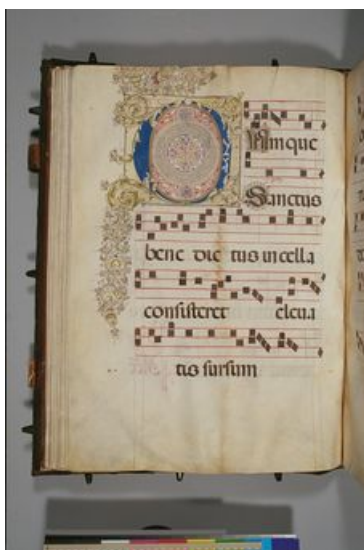 DUmque
Sanctus
bene dic tus in cella
consisteret eleva
tis sursum